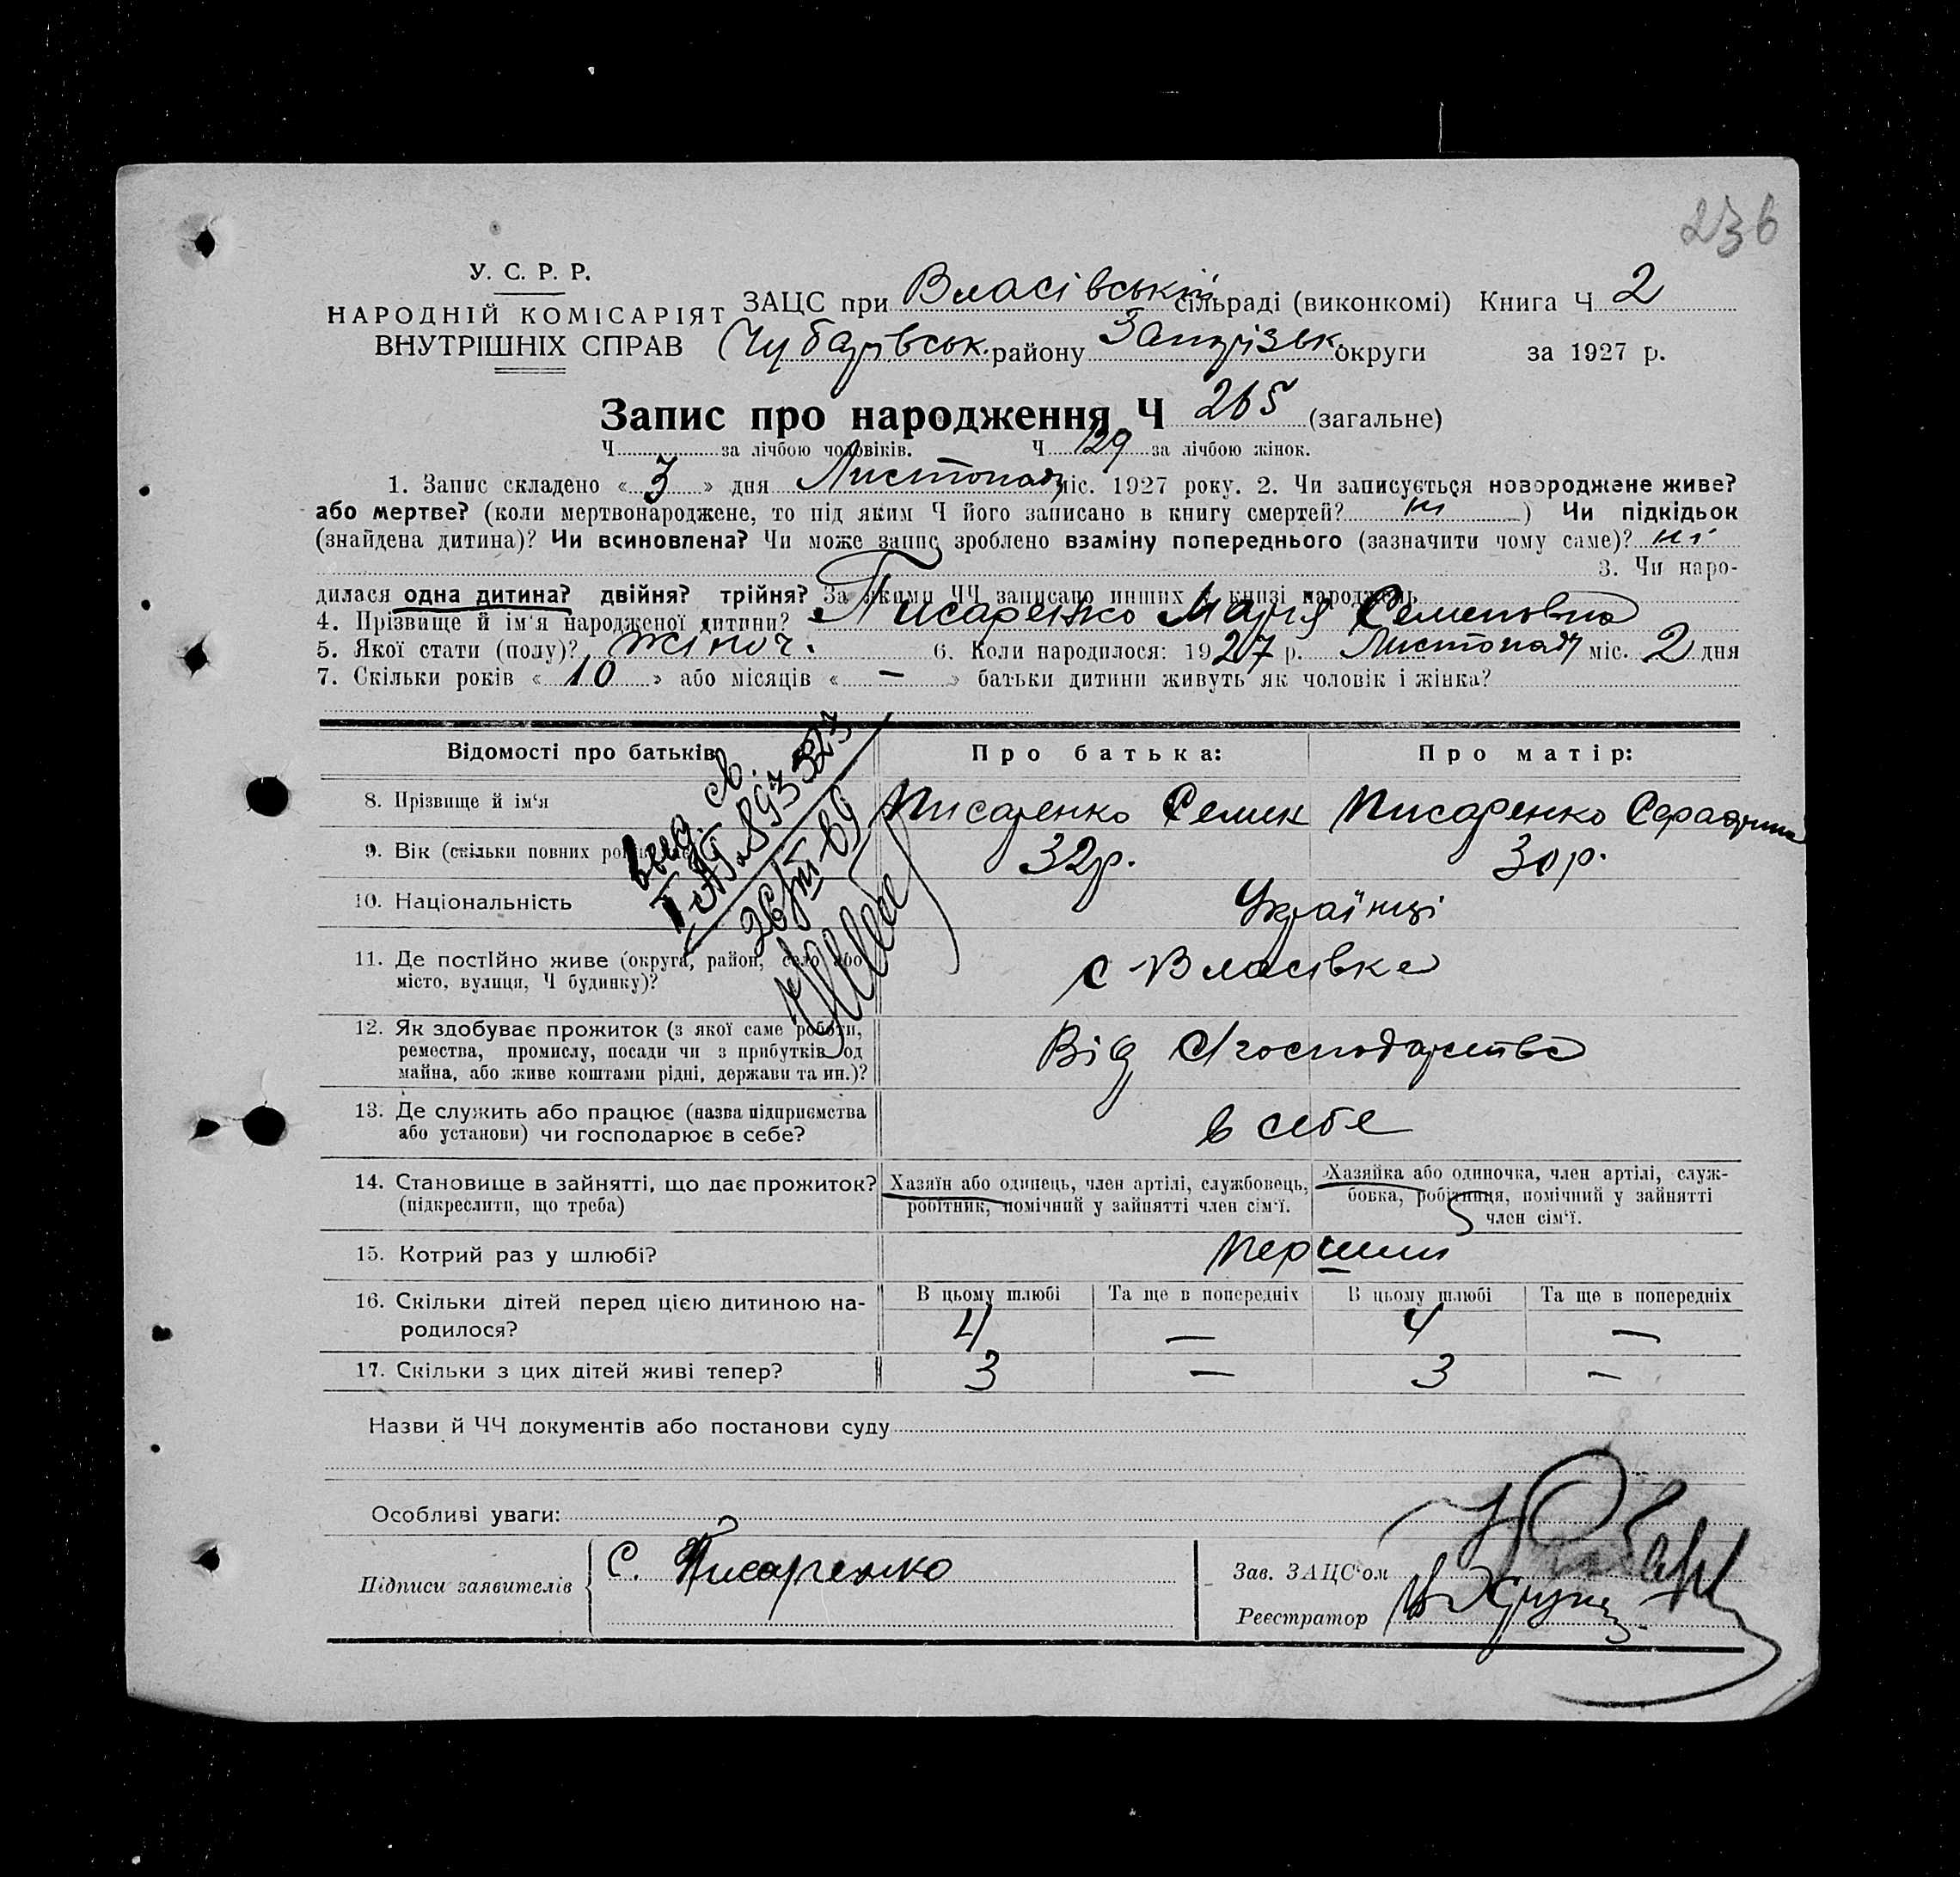 236
У. С. Р. Р.
НАРОДНІЙ КОМІСАРІЯТ
ВНУТРІШНІХ СПРАВ
ЗАЦС при Власівській сільраді (виконкомі) Книга Ч 2
Чубарівськ. району Запорізьк округи за 1927 р.
Запис про народження Ч 265 (загальне)
Ч за лічбою чоловіків. Ч 129 за лічбою жінок.
1. Запис складено « 3 » дня Листопада міс. 1927 року. 2. Чи записується новороджене живе?
або мертве? (коли мертвонароджене, то під яким Ч його записано в книгу смертей? ні ) Чи підкідьок
(знайдена дитина)? Чи всиновлена? Чи може запис зроблено взаміну попереднього (зазначити чому саме)? ні
3. Чи наро-
дилася одна дитина? двійня? трійня? За якими ЧЧ записано инших в книзі народжень
4. Прізвище й ім'я народженої дитини? Писаренко Марія Семеновна
5. Якої стати (полу)? жіноч. 6. Коли народилося: 1927 р. Листопада міс. 2 дня
7. Скільки років « 10 » або місяців « — » батьки дитини живуть як чоловік і жінка?
Відомості про батьків Про батька: Про матір:
8. Прізвище й ім'я Писаренко Семен Писаренко
9. Вік (скільки повних 32р. 30р.
10. Національність Українці
11. Де постійно живе (округа, район, село або
місто, вулиця, Ч будинку)? с Власівка
12. Як здобуває прожиток (з якої саме роботи,
ремества, промислу, посади чи з прибутків од
майна, або живе коштами рідні, держави та ин.)? Від с/господарства
13. Де служить або працює (назва підприємства
або установи) чи господарює в себе? в себе
14. Становище в зайнятті, що дає прожиток?
(підкреслити, що треба)
Хазяїн або одинець, член артілі, службовець,
робітник, помічний у зайнятті член сім'ї.
Хазяйка або одиночка, член артілі, служ-
бовка, робітниця, помічний у зайнятті
член сім'ї.
15. Котрий раз у шлюбі? перший
16. Скільки дітей перед цією дитиною на-
родилося?
В цьому шлюбі Та ще в попередніх В цьому шлюбі Та ще в попередніх
4 — 4 —
17. Скільки з цих дітей живі тепер? 3 — 3 —
Назви й ЧЧ документів або постанови суду
Особливі уваги:
Підписи заявителів С. Писаренко
Зав. ЗАЦС'ом
Реєстратор